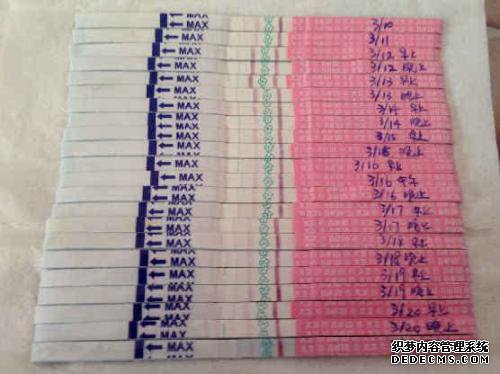 MAX 3/10
MAX 3/11
MAX 3/12 早上
MAX 3/12 晚上
MAX 3/13 早上
MAX 3/13 晚上
MAX 3/14 早上
MAX 3/14 晚上
MAX 3/15 早上
MAX 晚上
MAX 早上
MAX 3/16 中午
MAX 3/16 晚上
MAX 3/17 早上
MAX 3/17 晚上
MAX 3/18 早上
MAX 3/18 晚上
MAX 3/19 早上
MAX 3/19 晚上
MAX 3/20 早上
MAX 3/20 晚上
MAX
织梦内容管理系统
DEDECMS.COM